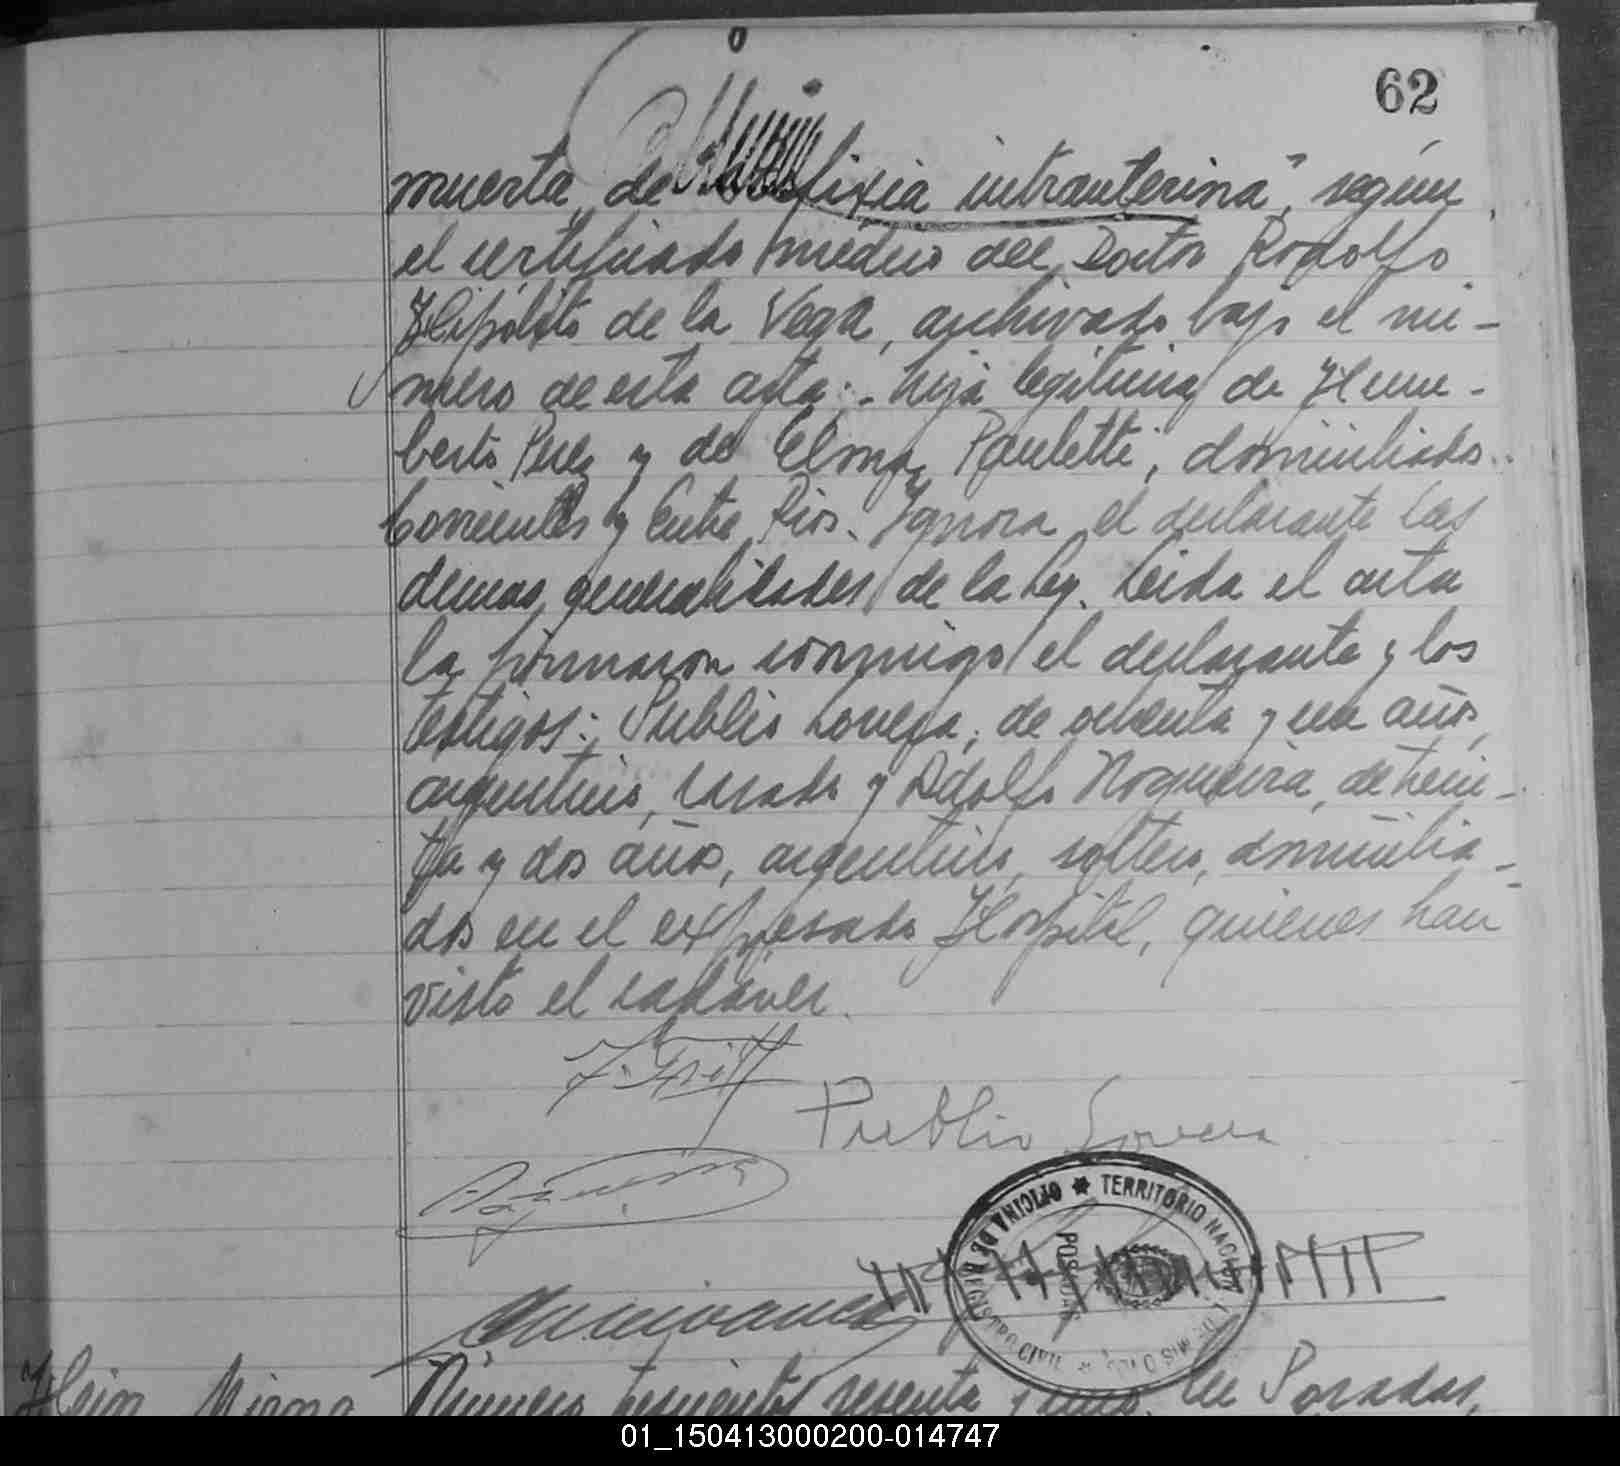 62
muerta, de "asfixia intrauterina", según
el certificado médico del Doctor Rodolfo
Hipólito de la Vega, archivado bajo el nú-
mero de esta acta.- hija legítima de Heme-
berto Perez y de Elma Pauletti, domiciliados
Corrientes y Entre Rios. Ignora el declarante las
demas generalidades de la ley. Leida el acta
la firmaron conmigo el declarante y los
testigos: Publio Lovera, de cuarenta y un años,
argentino, casado y Adolfo Nogueira, de trein-
ta y dos años, argentino, soltero, domicilia-
dos en el expresado Hospital, quienes han
visto el cadáver.
Publio Lovera
OFICINA DE REGISTRO CIVIL * TERRITORIO NACIONAL DE MISIONES
POSADAS
Mirna Número trescientos sesenta y uno. En Posadas,
01_150413000200-014747